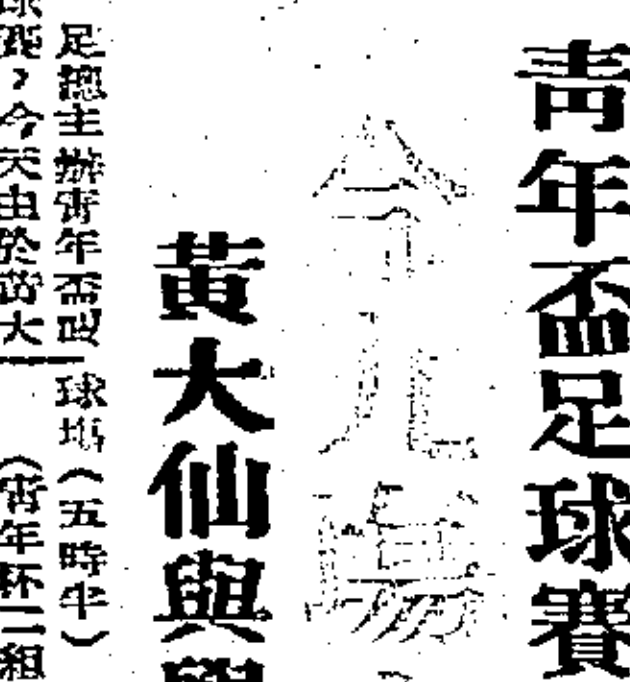 青年盃足球賽
今九場
黃大仙與
足總主辦青年盃
球場（五時半）
今天由於黃大
（青年杯二組